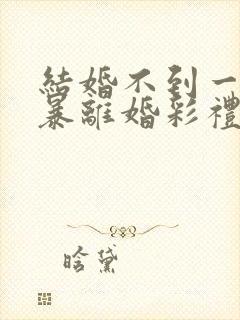 結婚不到一
暴離婚彩禮
晗黛